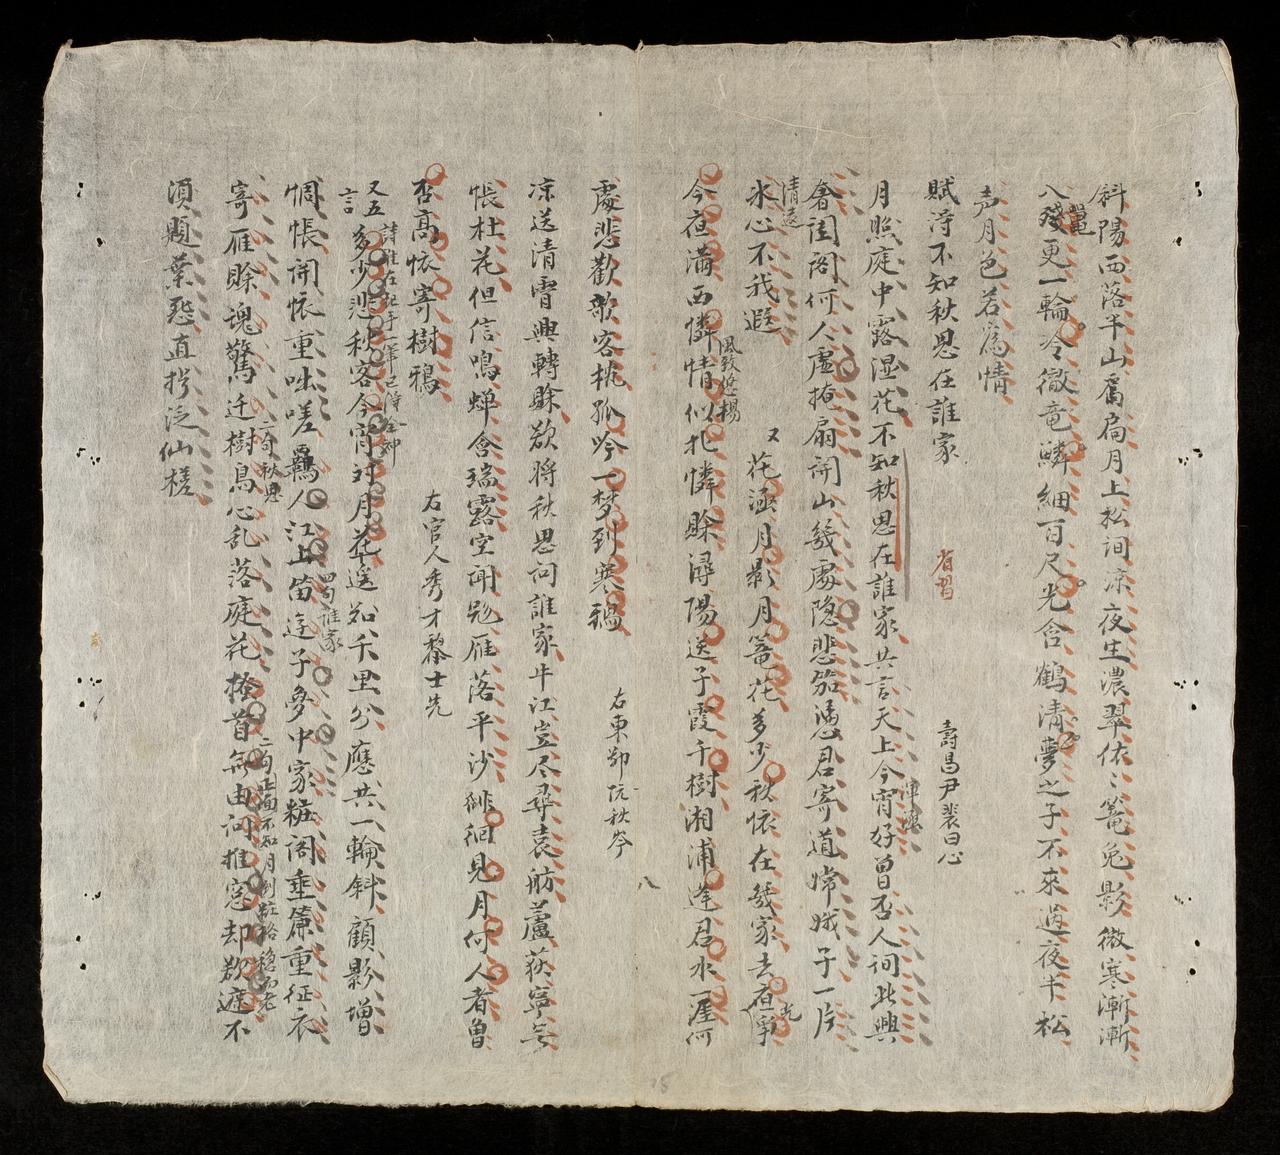 斜陽西落半山扉扃月上松间凉夜生濃翠依〻篭兔影微寒漸漸
入殘更一輪冷徹竜鱗細百尺光含鶴清夢之子不來過夜半松
声月色若為情
賦淂不知秋思在誰家
省習
壽昌尹裴日心
月照庭中露湿花不知秋思在誰家共言天上今宵好曽否人间此興
奢闺阁何人虚掩扇闭山幾處隐悲笳憑君寄道嫦娥子一片
氷心不我遐
清遠
又花涵月影月篭花多少秋怀在幾家去夜寧
风致悠楊
今夜满西憐情似北憐賖潯陽送子霞千樹湘浦逢君水一涯何
處悲歡歌客枕孤吟一梦到寒鴉
右東鄂阮秋岑
八
凉送清霄興轉賖欲將秋思问誰家牛江豈尽尋袁舫蘆荻寧無
帳杜花但信鳴蝉含瑞露空闻旅雁落平沙徘徊見月何人者曽
否高怀寄樹鴉
右官人秀才黎士先
又五言
多少悲秋客今宵对月花遥知千里分應共一輪斜顧影增
惆悵闭怀重咄嗟羈人江上笛逰子夢中家粧阁垂簾重征衣
四句誰家
寄雁賖魂驚迁樹鳥心乱落庭花搔首無由问推窓却欲遮不
二句秋思
須題葉怨直拧泛仙槎
15